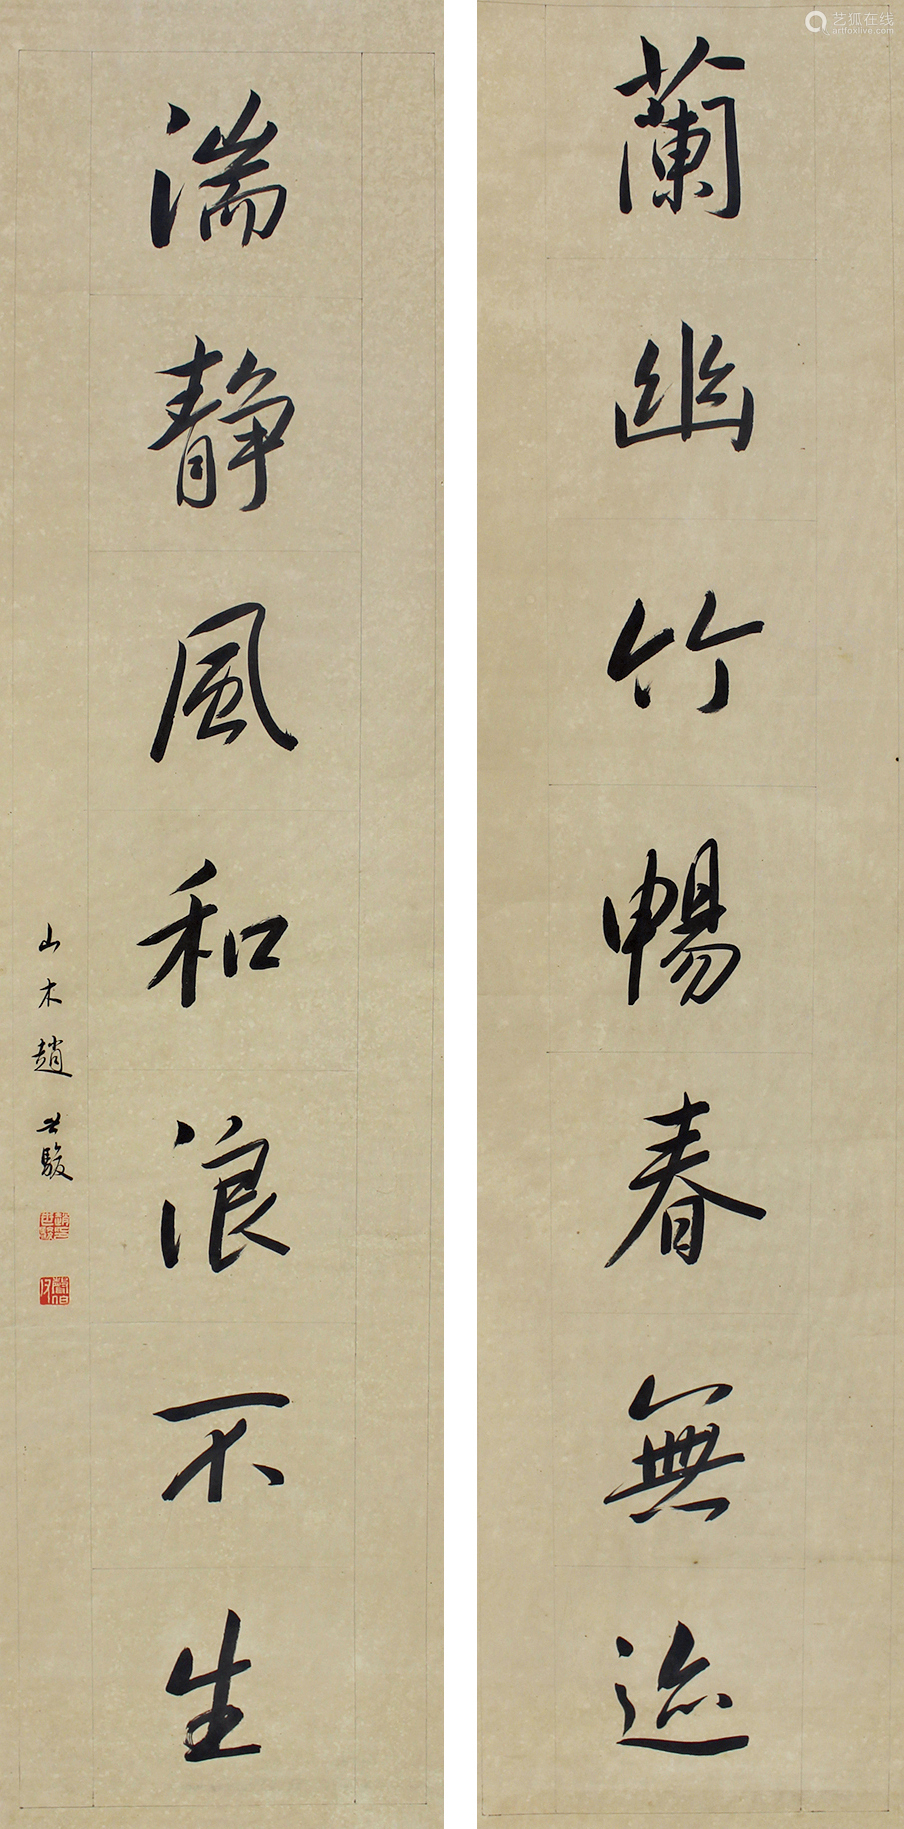 蘭幽竹暢春無迹
湍静風和浪不生
山木趙世駿
艺狐在线
artfoxlive.com